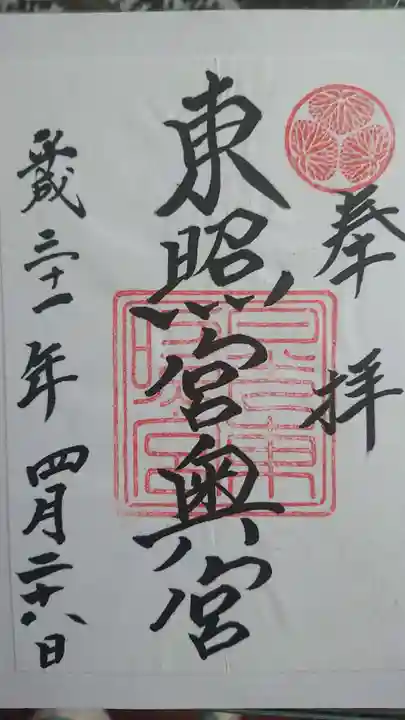 奉拝
東照宮奥宮
平成三十一年四月二十八日